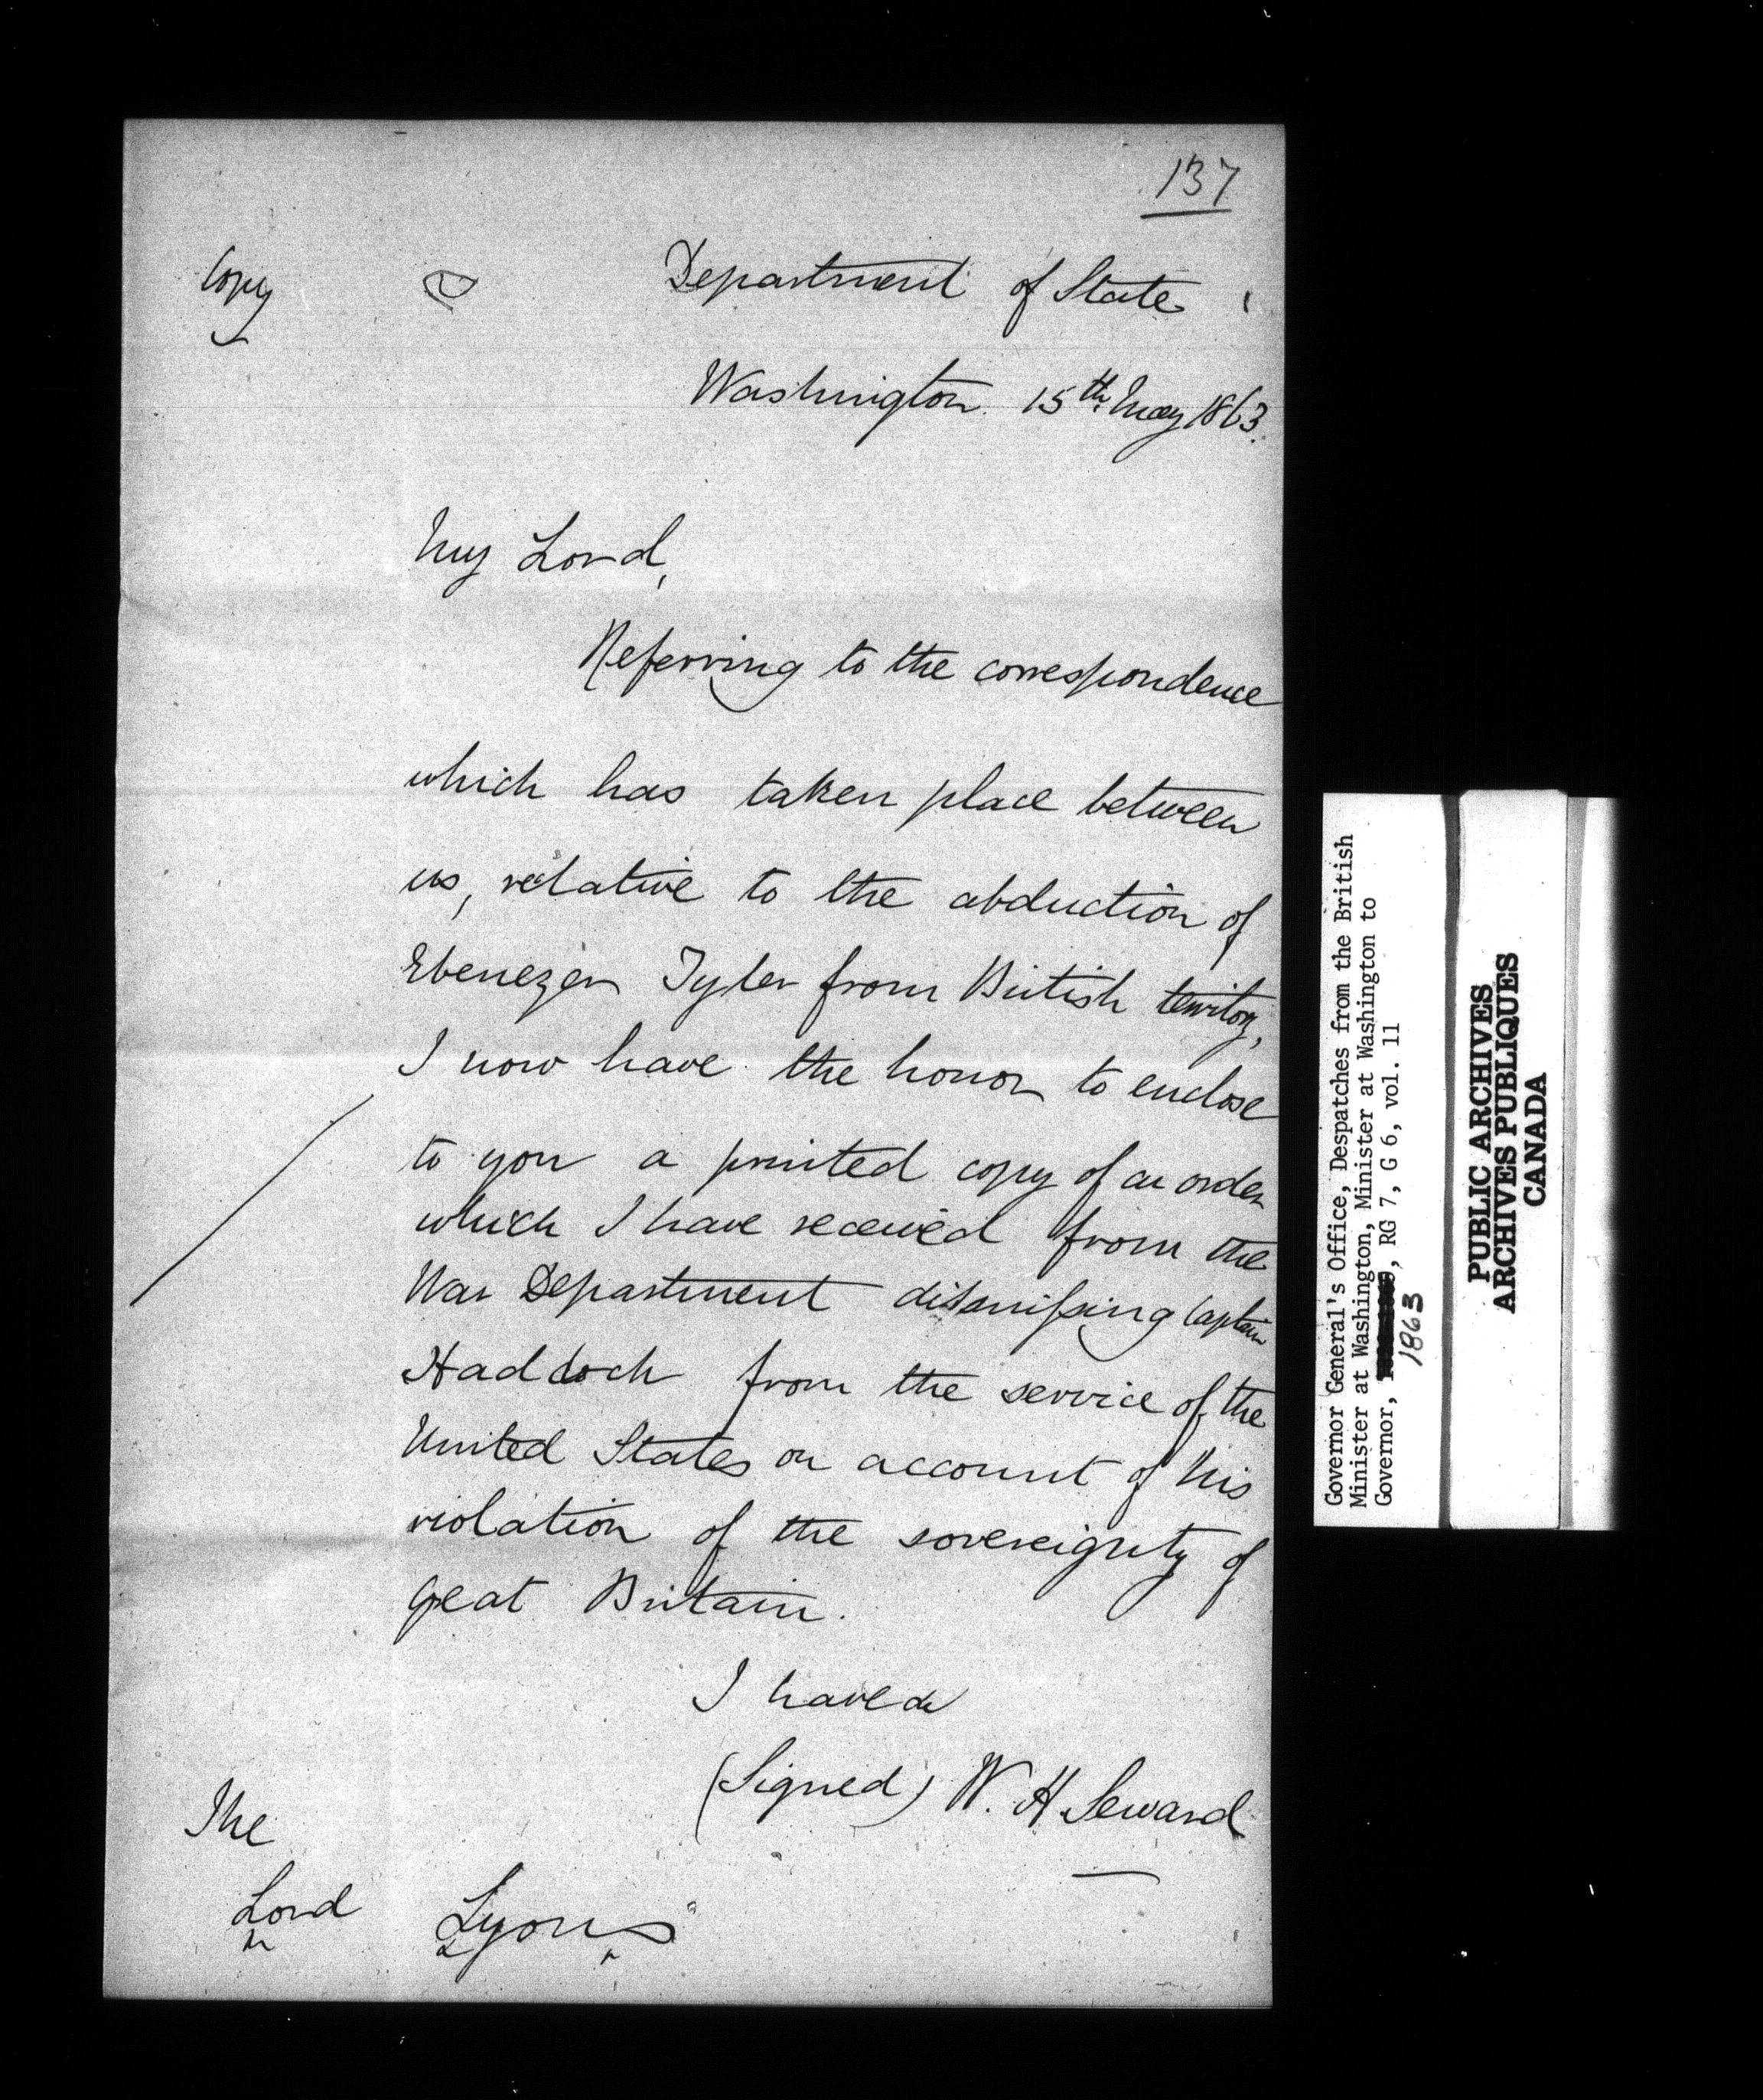 137
Copy
Department of State
Washington. 15th May 1863.
My Lord,
Referring to the correspondence
which has taken place between
us, relative to the abduction of
Ebenezer Tyler from British territory,
I now have the honor to enclose
to you a printed copy of an order
which I have received from the
War Department dismissing Captain
Haddock from the service of the
United States on account of his
violation of the sovereignty of
Great Britain.
I have &c
(Signed) W. H. Seward
The
Lord Lyons
Governor General's Office, Despatches from the British
Minister at Washington, Minister at Washington to
Governor, , RG 7, G 6, vol. 11
1863
PUBLIC ARCHIVES
ARCHIVES PUBLIQUES
CANADA